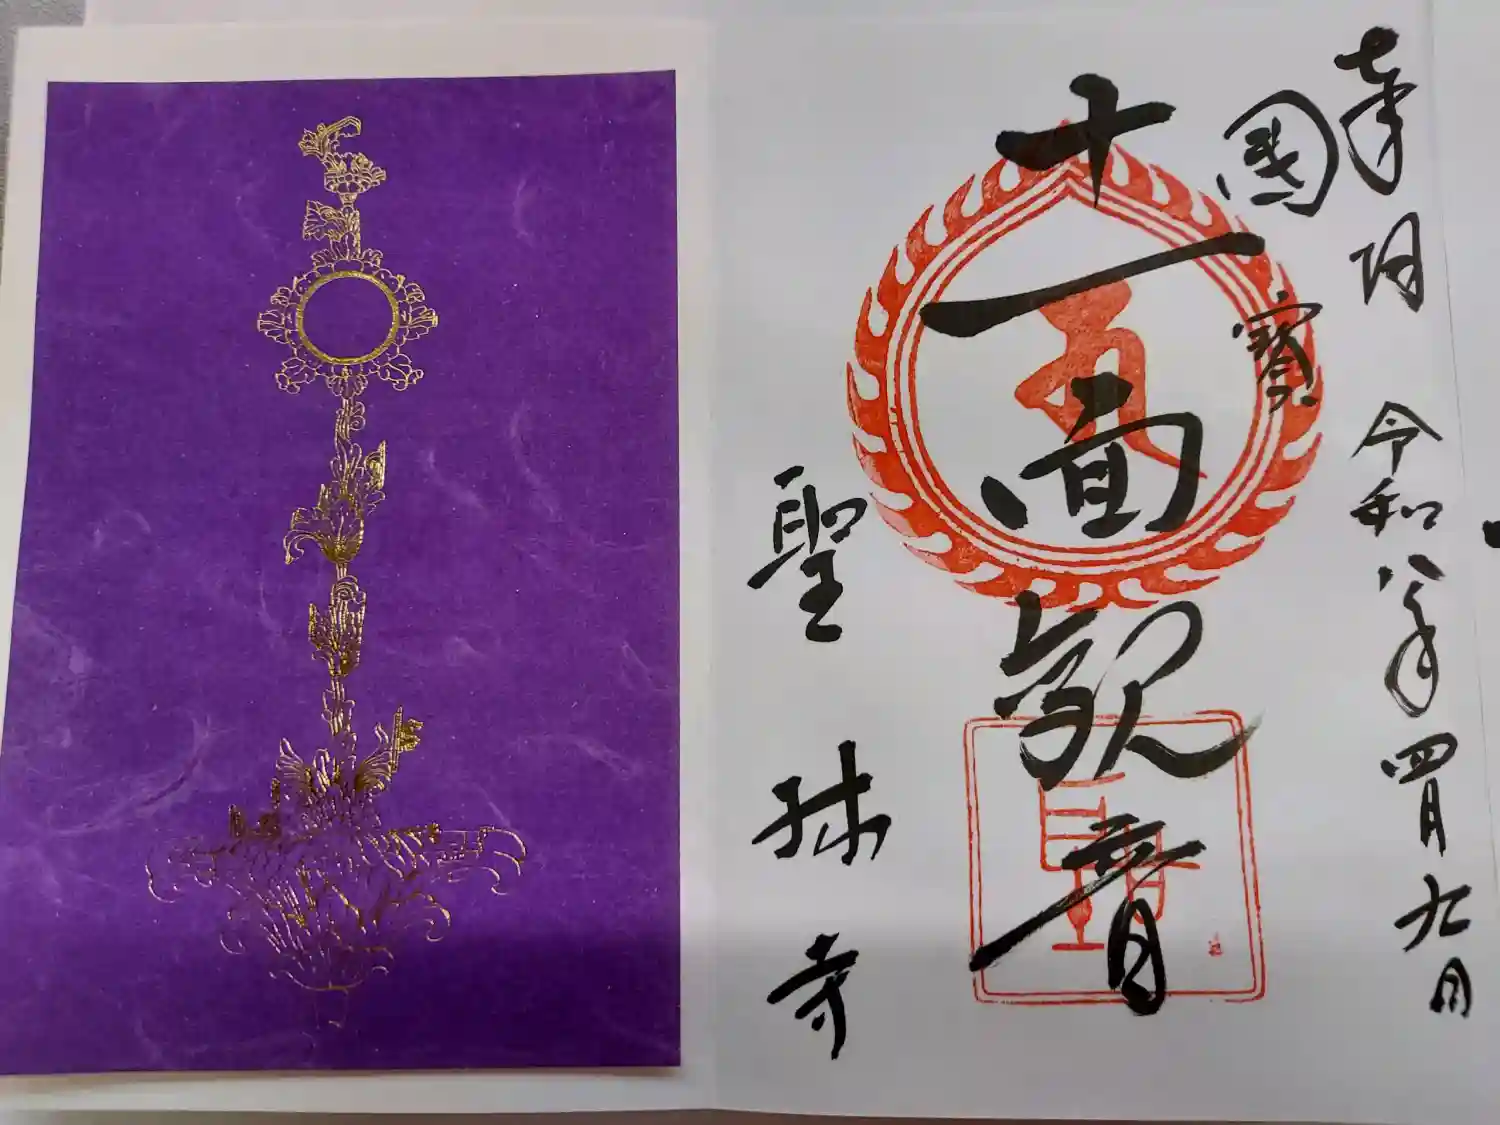 奉拝 令和八年四月九日
國寳
十一面観音
聖林寺